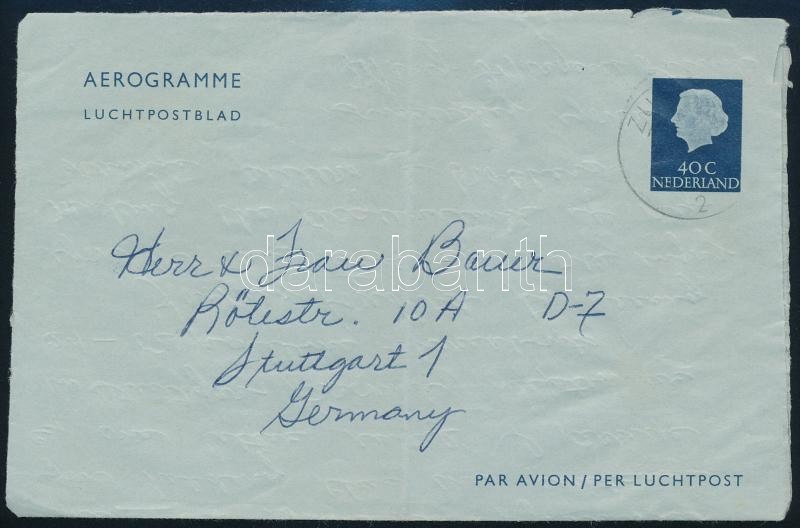 AEROGRAMME
LUCHTPOSTBLAD
40 C
NEDERLAND
2
Herr & Frau Bauer
Rötestr. 10 A D-7
Stuttgart 1
Germany
darabanth
PAR AVION / PER LUCHTPOST